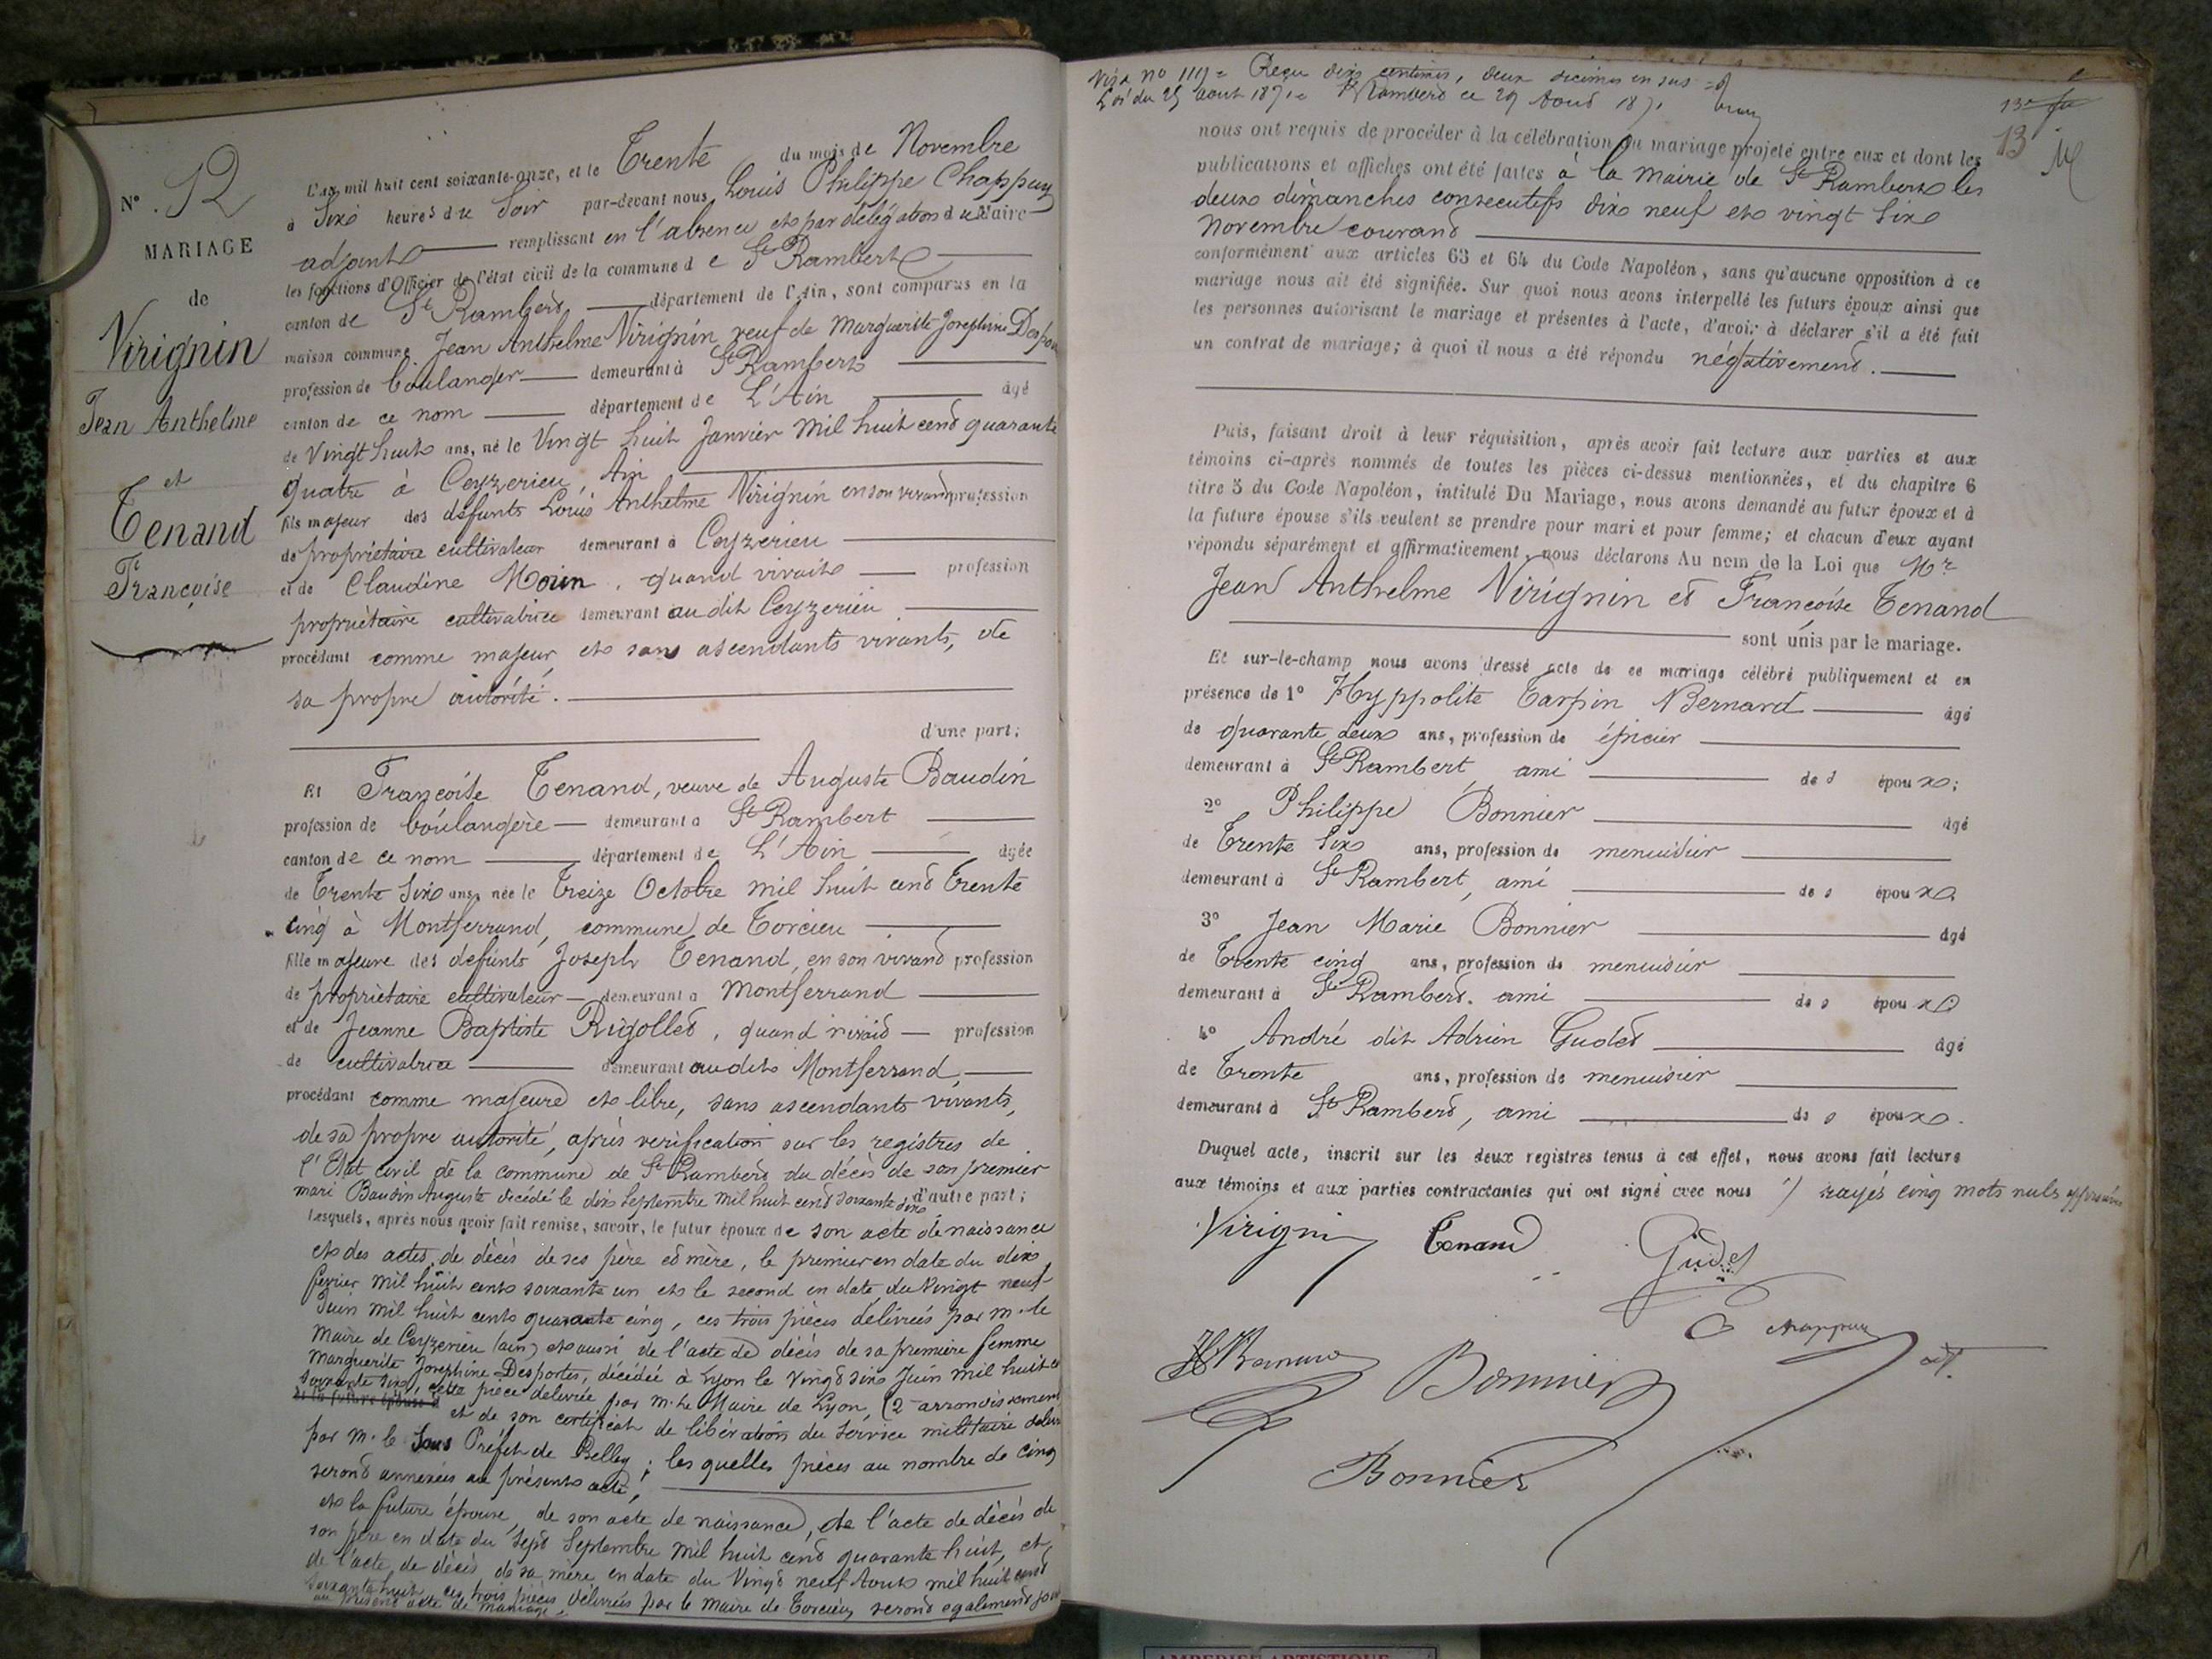 N° 12
MARIAGE
de
Virignin
Jean Anthelme
et
Tenand
Françoise
L'an mil huit cent soixante-onze, et le Trente du mois de Novembre
à Six heures du Soir par-devant nous Louis Philippe Chappuy
adjoint remplissant en l'absence et par délégation du Maire
les fonctions d'Officier de l'état civil de la commune de St Rambert
canton de St Rambert département de l'Ain, sont comparus en la
maison commune Jean Anthelme Virignin veuf de Marguerite Josephine
profession de boulanger demeurant à St Rambert
canton de ce nom département de L'Ain âgé
de Vingt huit ans, né le Vingt huit Janvier mil huit cent quarante
quatre à Ceyzerieu, Ain
fils majeur des défunts Louis Anthelme Virignin en son vivant profession
de propriétaire cultivateur demeurant à Ceyzerieu
et de Claudine quand vivait profession
propriétaire cultivatrice demeurant au dit Ceyzerieu
procédant comme majeur et sans ascendants vivants, de
sa propre autorité.
d'une part;
Et Françoise Tenand, veuve de Auguste Baudin
profession de boulangère demeurant à St Rambert
canton de ce nom département de L'Ain âgée
de Trente Six ans, née le Treize Octobre mil huit cent trente
cinq à Montferrand, commune de Torcieu
fille majeure des défunts Joseph Tenand, en son vivant profession
de propriétaire cultivateur demeurant à Montferrand
et de Jeanne Baptiste Rigollet, quand vivait profession
de cultivatrice demeurant audit Montferrand,
procédant comme majeure et libre, sans ascendants vivants,
de sa propre autorité, après vérification sur les registres de
l'Etat civil de la commune de St Rambert du décès de son premier
mari Baudin Auguste décédé le dix Septembre mil huit cent soixante dix d'autre part;
Lesquels, après nous avoir fait remise, savoir, le futur époux de son acte de naissance
et des actes de décès de ses père et mère, le premier en date du dix
fevrier mil huit cent soixante un et le second en date du vingt neuf
Juin mil huit cent quarante cinq, ces trois pièces délivrées par m. le
Maire de Ceyzerieu (ain) et aussi de l'acte de décès de sa première femme
Marguerite Josephine Desportes, décédée à Lyon le vingt six Juin mil huit ct
soixante six, cette pièce délivrée par m. le Maire de Lyon, (2e arrondissement
et la future épouse et de son certificat de libération du service militaire
par m. le Sous Préfet de Belley; les quelles pièces au nombre de cinq
seront annexées au présent acte,
et la future épouse, de son acte de naissance, de l'acte de décès de
son père en date du Sept Septembre mil huit cent quarante huit, et
de l'acte de décès de sa mère en date du Vingt neuf Aout mil huit cent
soixante huit, ces trois pièces délivrées par le Maire de Torcieu, seront également
au présent acte de mariage.
Visa no 1119 = Reçu dix centimes, deux décimes en sus =
Loi du 23 Aout 1871 = St Rambert ce 29 Aout 1871
13
M
nous ont requis de procéder à la célébration du mariage projeté entre eux et dont les
publications et affiches ont été faites à la mairie de St Rambert les
deux dimanches consecutifs dix neuf et vingt six
novembre courant
conformément aux articles 63 et 64 du Code Napoléon, sans qu'aucune opposition à ce
mariage nous ait été signifiée. Sur quoi nous avons interpellé les futurs époux ainsi que
les personnes autorisant le mariage et présentes à l'acte, d'avoir à déclarer s'il a été fait
un contrat de mariage; à quoi il nous a été répondu négativement.
Puis, faisant droit à leur réquisition, après avoir fait lecture aux parties et aux
témoins ci-après nommés de toutes les pièces ci-dessus mentionnées, et du chapitre 6
titre 5 du Code Napoléon, intitulé Du Mariage, nous avons demandé au futur époux et à
la future épouse s'ils veulent se prendre pour mari et pour femme; et chacun d'eux ayant
répondu séparément et affirmativement, nous déclarons Au nom de la Loi que Mr
Jean Anthelme Virignin et Françoise Tenand
sont unis par le mariage.
Et sur-le-champ nous avons dressé acte de ce mariage célébré publiquement et en
présence de 1° Hyppolite Tarpin Bernard âgé
de quarante deux ans, profession de épicier
demeurant à St Rambert ami des époux;
2° Philippe Bonnier âgé
de Trente Six ans, profession de menuisier
demeurant à St Rambert, ami des époux
3° Jean Marie Bonnier âgé
de Trente cinq ans, profession de menuisier
demeurant à St Rambert. ami des époux
4° André dit Adrien Gudet âgé
de Trente ans, profession de menuisier
demeurant à St Rambert, ami des époux.
Duquel acte, inscrit sur les deux registres tenus à cet effet, nous avons fait lecture
aux témoins et aux parties contractantes qui ont signé avec nous /) rayés cinq mots nuls approuvés
Virignin Tenand Gudet
Chappuy adt.
H Bernard Bonnier
Bonnier
AMPERISE ARTISTIQUE